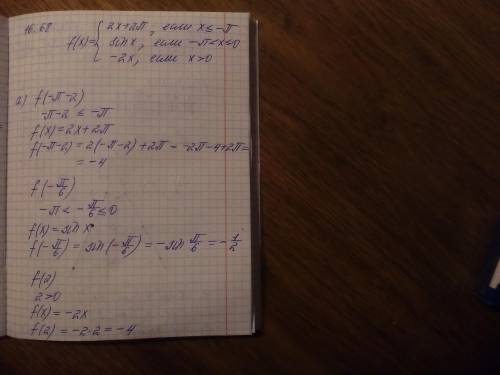 16.68
f(x)={ 2x+2π, если x≤-π
sin x, если -π<x≤0
-2x, если x>0
а) f(-π-2)
-π-2 ≤ -π
f(x)=2x+2π
f(-π-2)=2(-π-2)+2π = -2π-4+2π=
= -4
f(-π/6)
-π< -π/6 ≤0
f(x)=sin x
f(-π/6) = sin(-π/6) = -sin π/6 = -1/2
f(2)
2>0
f(x)=-2x
f(2) = -2·2 = -4